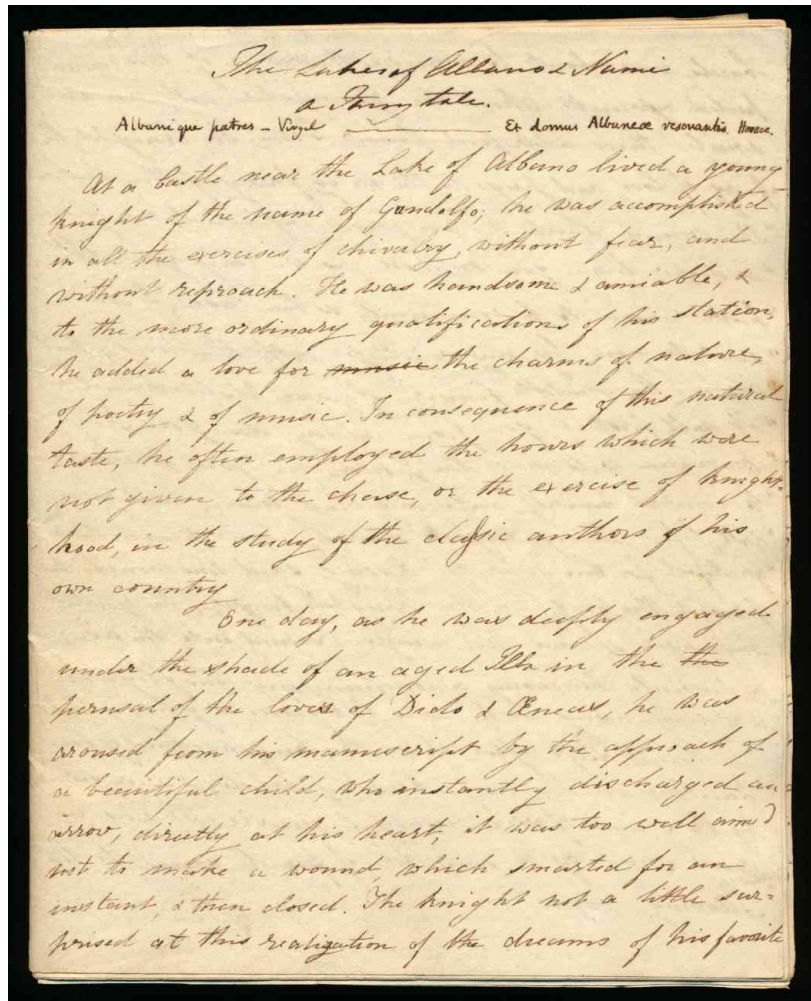 The Lakes of Albano & Nemi
a Fairy tale.
Albanique patres – Virgil — Et domus Albuneæ resonantis. Horace.
At a Castle near the Lake of Albano lived a young
knight of the name of Gandolfo; he was accomplished
in all the exercises of chivalry, without fear, and
without reproach. He was handsome & amiable, &
to the more ordinary qualifications of his station,
he added a love for music the charms of nature,
of poetry & of music. In consequence of this natural
taste, he often employed the hours which were
not given to the chase, or the exercise of knight-
hood, in the study of the classic authors of his
own country
One day, as he was deeply engaged
under the shade of an aged Ilex in the the
perusal of the loves of Dido & Œneas, he was
aroused from his manuscript by the approach of
a beautiful child, who instantly discharged an
arrow, directly at his heart, it was too well aimed
not to make a wound, which smarted for an
instant, & then closed. The knight not a little sur=
prised at this realization of the dreams of his favorite